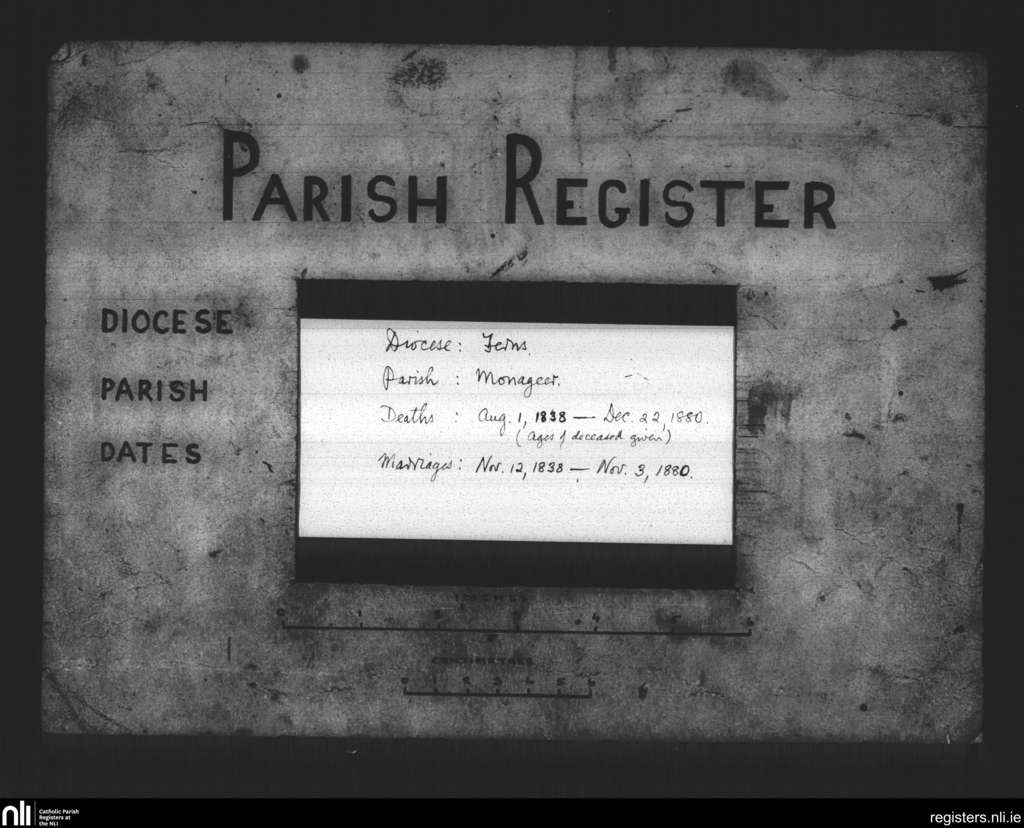 PARISH REGISTER
DIOCESE
PARISH
DATES
Diocese: Ferns.
Parish: Monageer.
Deaths: Aug. 1, 1838 — Dec. 22, 1880.
(ages of deceased given)
Marriages: Nov. 12, 1838 — Nov. 3, 1880.
CENTIMETRES
nli
Catholic Parish
Registers at
the NLI
registers.nli.ie